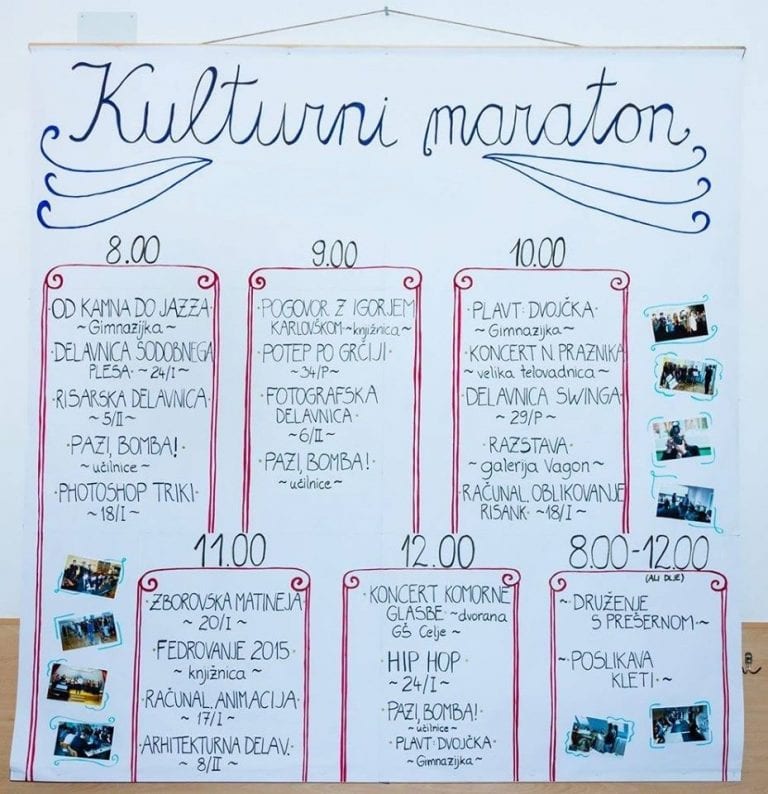 Kulturni maraton
8.00
OD KAMNA DO JAZZA
~ Gimnazijka ~
DELAVNICA SODOBNEGA
PLESA · ~ 24/I ~
· RISARSKA DELAVNICA ·
~ 5/II ~
· PAZI, BOMBA! ·
~ učilnice ~
· PHOTOSHOP TRIKI ·
~ 18/I ~
9.00
· POGOVOR Z IGORJEM
KARLOVŠKOM · ~ knjižnica ~
· POTEP PO GRČIJI ·
~ 34/P ~
· FOTOGRAFSKA
DELAVNICA ·
~ 6/II ~
· PAZI, BOMBA! ·
~ učilnice ~
10.00
· PLAVT: DVOJČKA ·
~ Gimnazijka ~
· KONCERT N. PRAZNIKA
~ velika telovadnica ~
· DELAVNICA SWINGA ·
~ 29/P ~
· RAZSTAVA ·
~ galerija Vagon ~
· RAČUNAL. OBLIKOVANJE
RISANK · ~ 18/I ~
11.00
· ZBOROVSKA MATINEJA ·
~ 20/I ~
· FEDROVANJE 2015 ·
~ knjižnica ~
· RAČUNAL. ANIMACIJA ·
~ 17/I ~
· ARHITEKTURNA DELAV. ·
~ 8/II ~
12.00
· KONCERT KOMORNE
GLASBE · ~ dvorana
GŠ Celje ~
· HIP HOP ·
~ 24/I ~
· PAZI, BOMBA! ·
~ učilnice ~
· PLAVT: DVOJČKA ·
~ Gimnazijka ~
8.00-12.00
(ALI DLJE)
~ · DRUŽENJE
S PREŠERNOM · ~
~ · POSLIKAVA
KLETI · ~